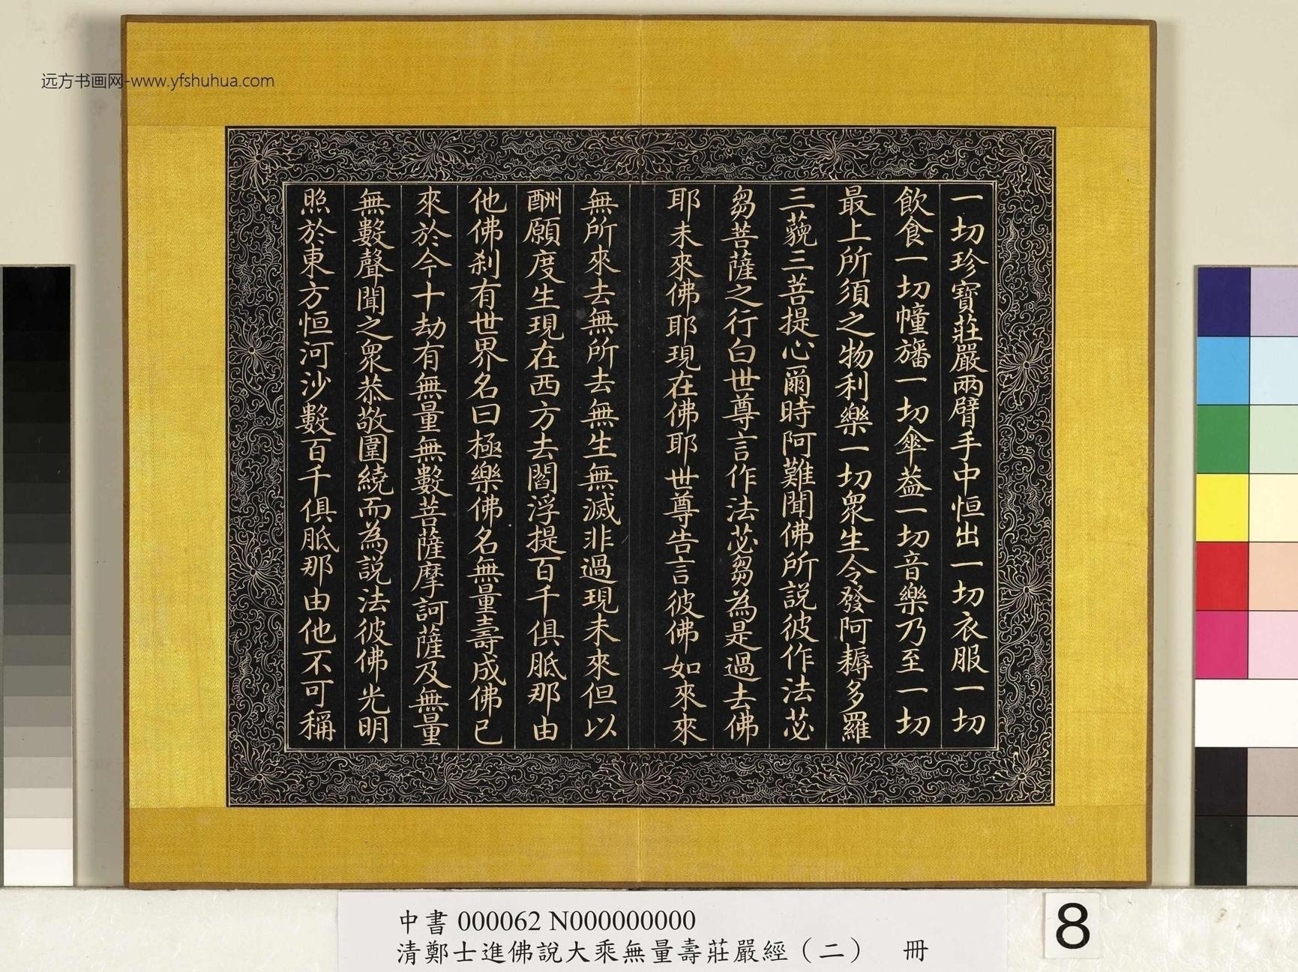 远方书画网-www.yfshuhua.com
一切珍寶莊嚴兩臂手中恒出一切衣服一切
飲食一切幢旛一切傘葢一切音樂乃至一切
最上所須之物利樂一切衆生令發阿耨多羅
三藐三菩提心爾時阿難聞佛所說彼作法苾
芻菩薩之行白世尊言作法苾芻為是過去佛
耶未來佛耶現在佛耶世尊告言彼佛如來來
無所來去無所去無生無滅非過現未來但以
酬願度生現在西方去閻浮提百千俱胝那由
他佛剎有世界名曰極樂佛名無量壽成佛已
來於今十劫有無量無數菩薩摩訶薩及無量
無數聲聞之衆恭敬圍繞而為說法彼佛光明
照於東方恒河沙數百千俱胝那由他不可稱
中書 000062 N000000000
清鄭士進佛說大乘無量壽莊嚴經（二） 冊
8